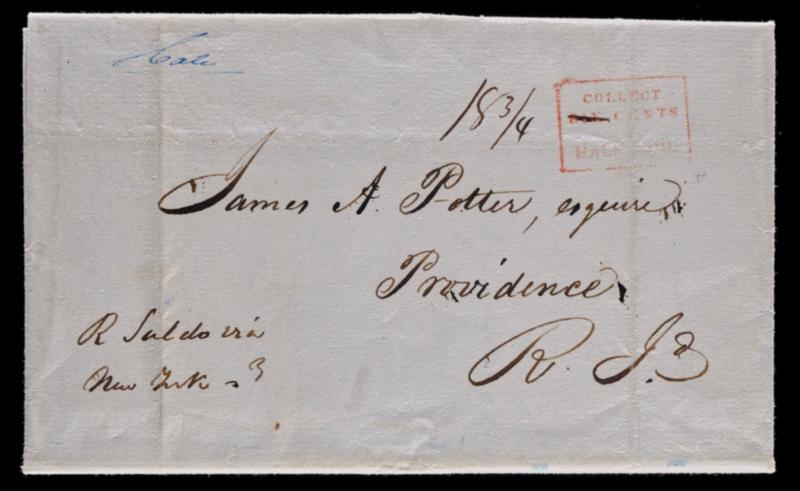 Hale
18 3/4
COLLECT
CENTS
James A. Potter, esquire
Providence
R. I.d
R Saldo via
New York